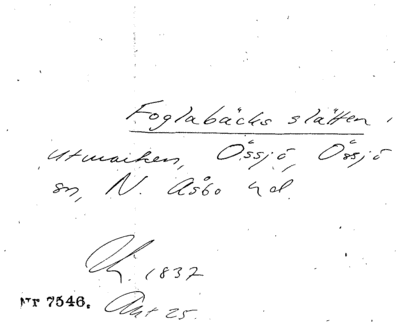 Foglabäcks slätten,
utmarken, Össjö, Össjö
sn, N. Åsbo hd.
Ch. 1837
Nr 7546. Akt 25.